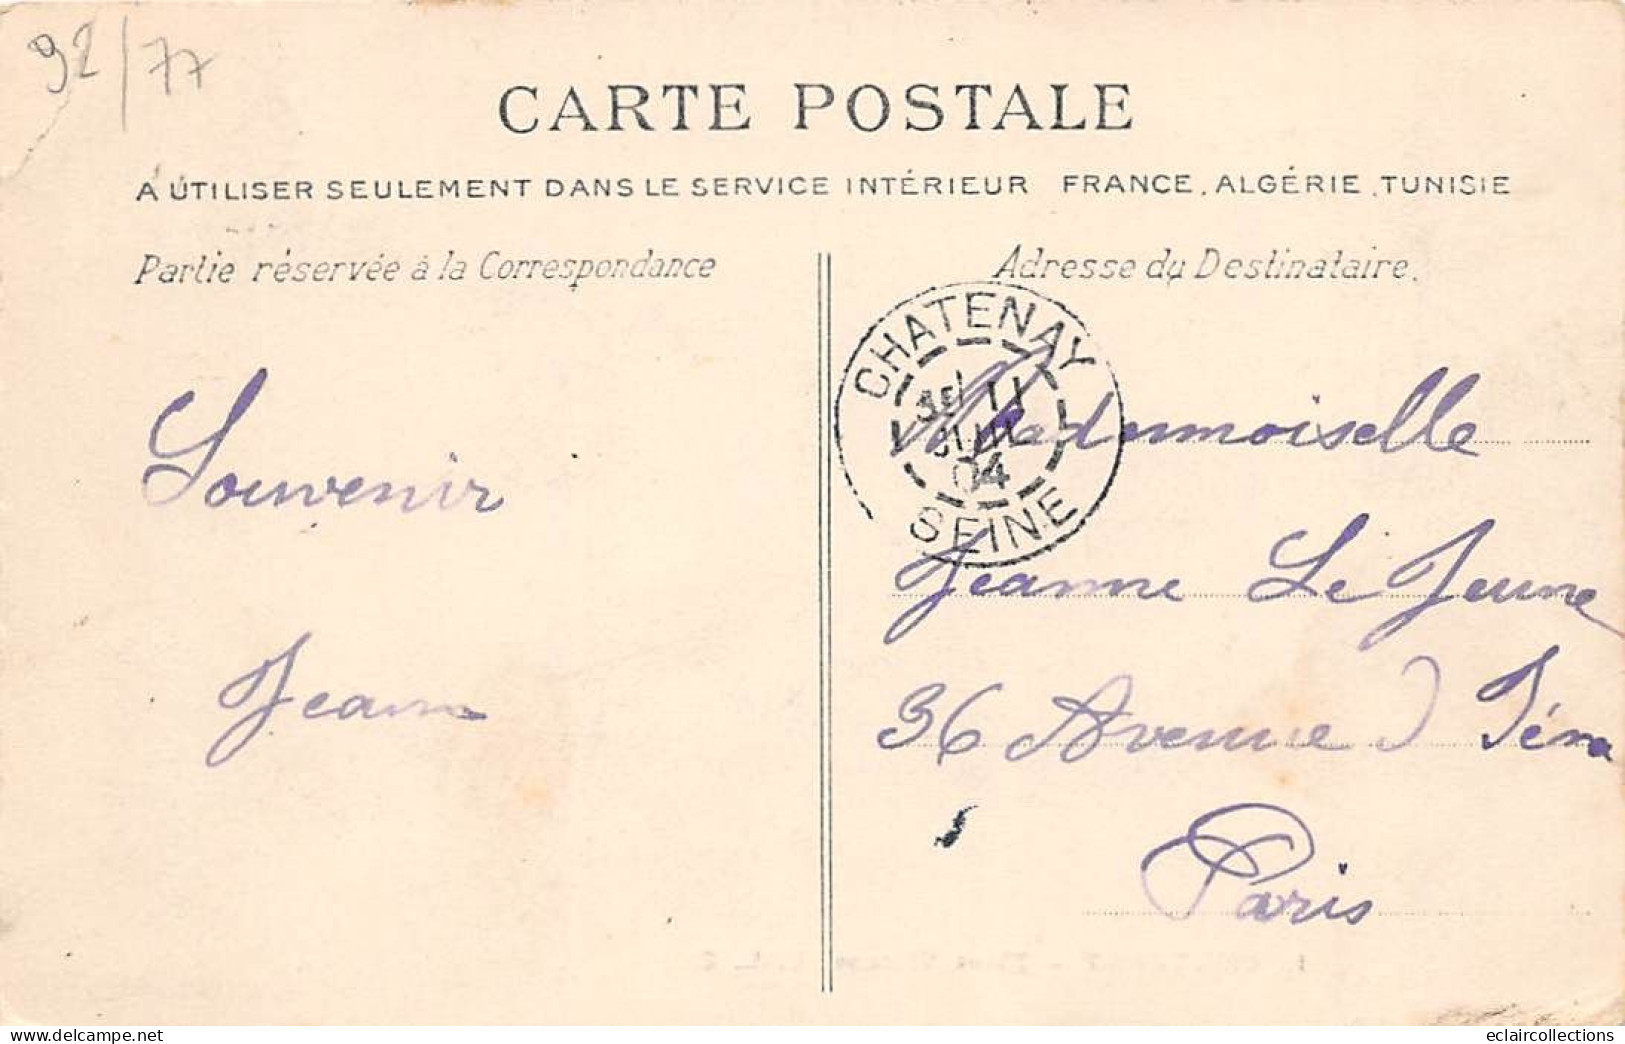 92/77
CARTE POSTALE
A UTILISER SEULEMENT DANS LE SERVICE INTÉRIEUR FRANCE, ALGÉRIE, TUNISIE
Partie réservée à la Correspondance
Adresse du Destinataire.
CHATENAY
11
JUIL
04
SEINE
Souvenir
Jean
Mademoiselle
Jeanne Le Jeune
36 Avenue d'Iéna
Paris
www.delcampe.net
eclaircollections